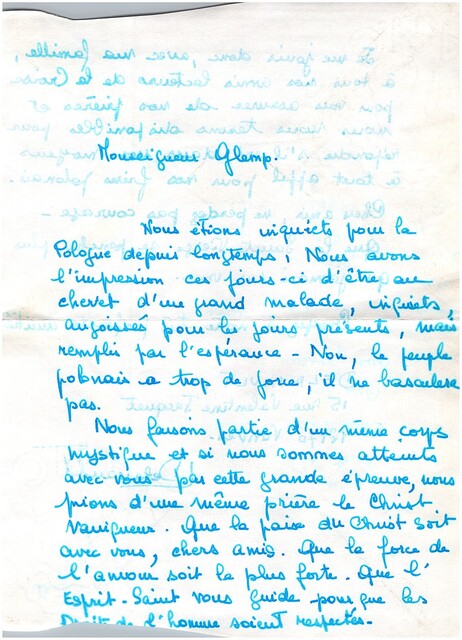 Monseigneur Glemp.
Nous étions inquiets pour la
Pologne depuis longtemps ; Nous avons
l'impression ces jours-ci d'être au
chevet d'un grand malade, inquiets,
angoissés pour les jours présents, mais
remplis par l'espérance - Non, le peuple
polonais a trop de force, il ne basculera
pas.
Nous faisons partie d'un même corps
mystique et si nous sommes atteints
avec vous par cette grande épreuve, nous
prions d'une même prière le Christ
Vainqueur. Que la paix du Christ soit
avec vous, chers amis. Que la force de
l'amour soit la plus forte. Que l'
Esprit-Saint vous guide pour que les
Droits de l'homme soient respectés-